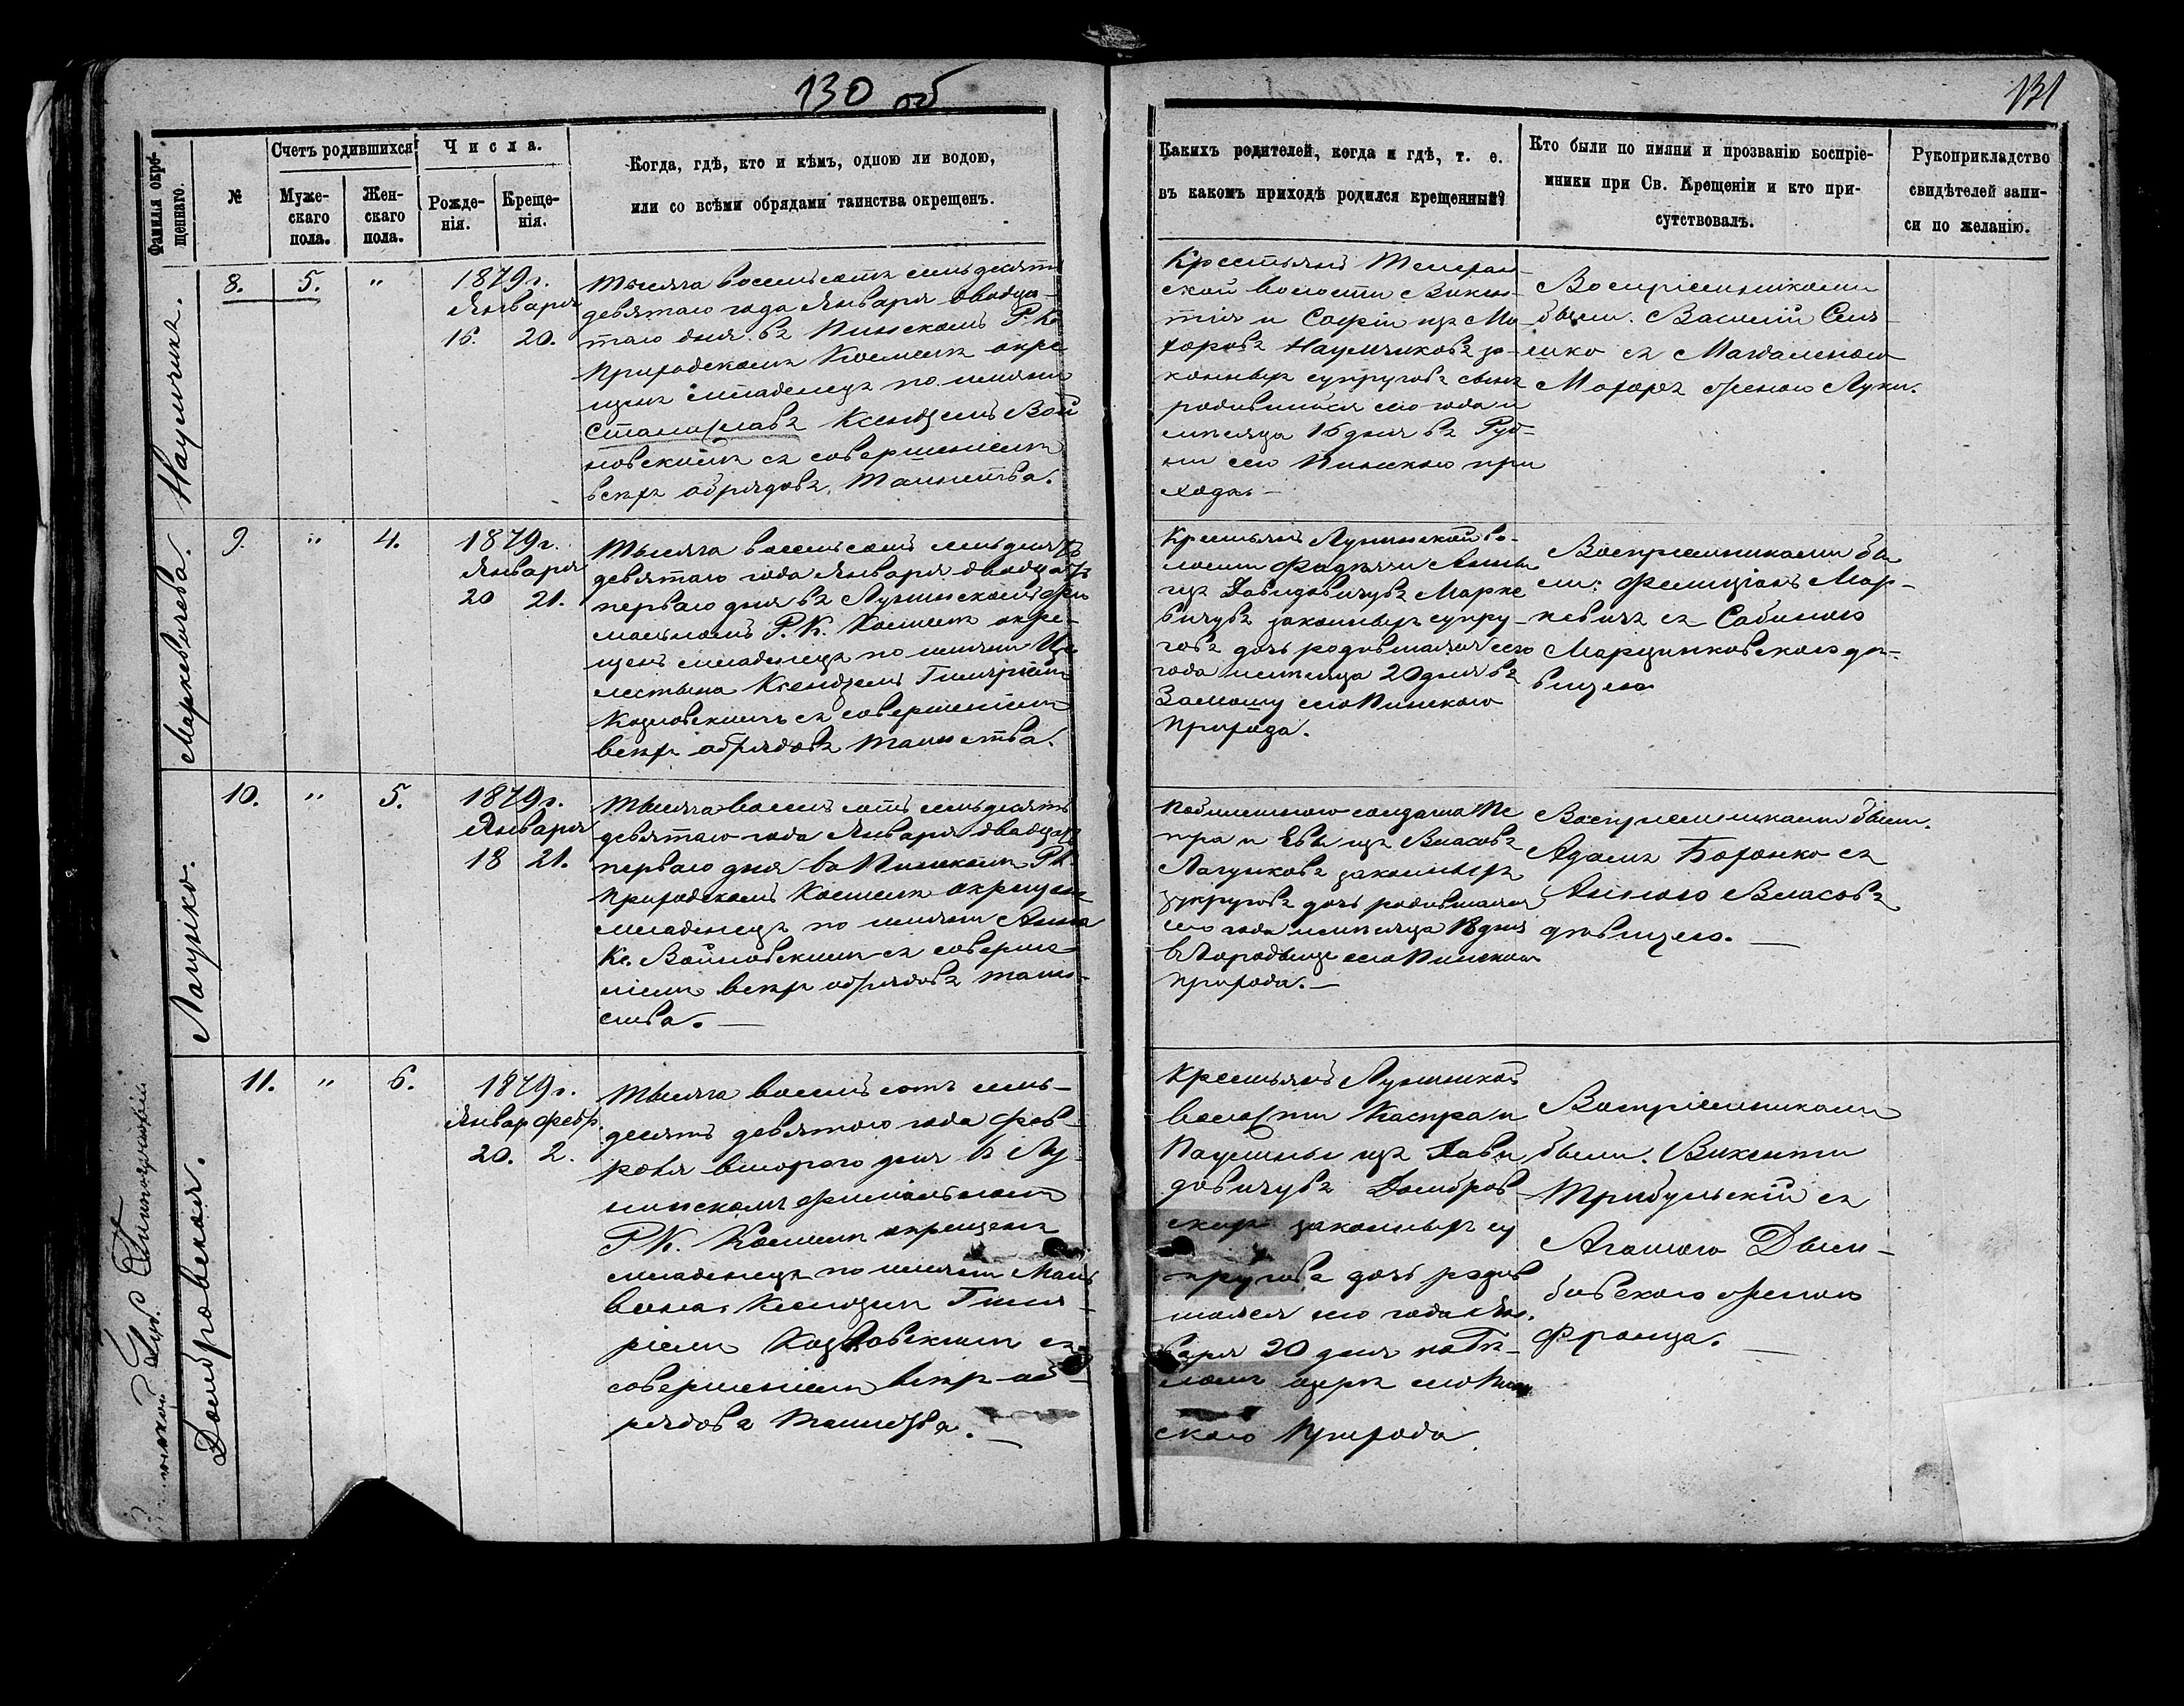 130 об
131
Фамилія окре-
щеннаго.
№
Счетъ родившихся
Муже-
скаго
пола.
Жен-
скаго
пола.
Числа.
Рожде-
нія.
Креще-
нія.
Когда, гдѣ, кто и кѣмъ, одною ли водою,
или со всѣми обрядами таинства окрещенъ.
Какихъ родителей, когда и гдѣ, т. е.
въ какомъ приходѣ родился крещенный?
Кто были по имяни и прозванію воспріе-
мники при Св. Крещеніи и кто при-
сутствовалъ.
Рукоприкладство
свидѣтелей запи-
си по желанію.
Наумчикъ.
8. 5. "
1879 г.
Января
16. 20.
Тысяча восемьсотъ семьдесятъ
девятаго года Января двадца-
таго дня въ Пинскомъ Р. К.
Приходскомъ Костелѣ окре
щенъ младенецъ по имяни
Станиславъ Ксендзомъ Вой
новскимъ съ совершеніемъ
всѣхъ обрядовъ Таинства.
Крестьянъ
ской волости Викен-
тія и Софіи изъ Мо
хоровъ Наумчиковъ за-
конныхъ супруговъ сынъ
родившійся сего года и
мѣсяца 16 дня въ Руд-
ни сего Пинскаго при
хода. —
Воспріемниками
были. Василій Сень
шко съ Магдаленою
Мохоръ женою Луки.
Маркевичева.
9. " 4.
1879 г.
Января
20 21.
Тысяча восемьсотъ семьдесятъ
девятаго года Января двадцать
перваго дня въ Лунинскомъ фи
мальномъ Р. К. Костелѣ окре-
щенъ младенецъ по имяни Це
лестына Ксендзомъ Гиляріемъ
Козловскимъ съ совершеніемъ
всѣхъ обрядовъ таинства.
Крестьянъ Лунинской во-
лости Фадѣя и Анны
изъ Давидовичувъ Марке
вичувъ законныхъ супру-
говъ дочь родившаяся сего
года и мѣсяца 20 дня въ
Замошу сего Пинскаго
Прихода.
Воспріемниками бы
ли: Фелиціанъ Мар-
кевичъ съ Сабиною
Марцинковскою дѣ-
вицею
Лагунко.
10. " 5.
1879 г.
Января
18 21.
Тысяча восемь сотъ семьдесятъ
девятаго года Января двадцать
перваго дня въ Пинскомъ Р. К.
Приходскомъ Костелѣ окрещенъ
младенецъ по имяни Анна
Кс. Войновскимъ съ соверше-
ніемъ всѣхъ обрядовъ таин-
ства. —
солдата Пе
тра и Евы изъ Власовъ
Лагунковъ законныхъ
супруговъ дочь родившаяся
сего года и мѣсяца 18 дня
въ Городище сего Пинскаго
прихода. —
Воспріемниками были.
Адамъ Боронко съ
Анною Власовъ
дѣвицею. —
Домбровская.
11. " 6.
1879 г.
Январ Февр.
20. 2.
Тысяча восемь сотъ семь-
десятъ девятаго года Фев-
раля втораго дня въ Лу
нинскомъ филіальномъ
Р. К. Костелѣ окрещенъ
младенецъ по имяни Маль
вина. Ксендзомъ Гиля-
ріемъ Козловскимъ съ
совершеніемъ всѣхъ об-
рядовъ Таинства. —
Крестьянъ Лунинской
волости Каспра и
Паулины изъ Дави
довичувъ Домбров-
скихъ законныхъ су
пруговъ дочь родив
шаяся сего года Ян-
варя 20 дня на Бѣ-
ломъ озерѣ сего Пин
скаго Прихода.
Воспріемниками
были. Викенти
Трибульскій съ
Агатою Дым-
бовскою женою
Франца. —